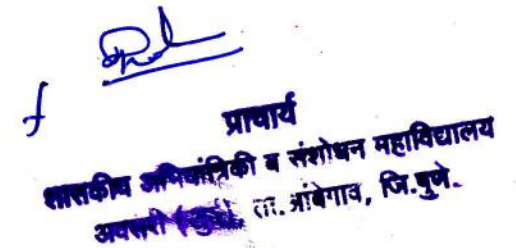 प्राचार्य
शासकीय अभियांत्रिकी व संशोधन महाविद्यालय
अवसरी (खुर्द), ता. आंबेगाव, जि.पुणे.